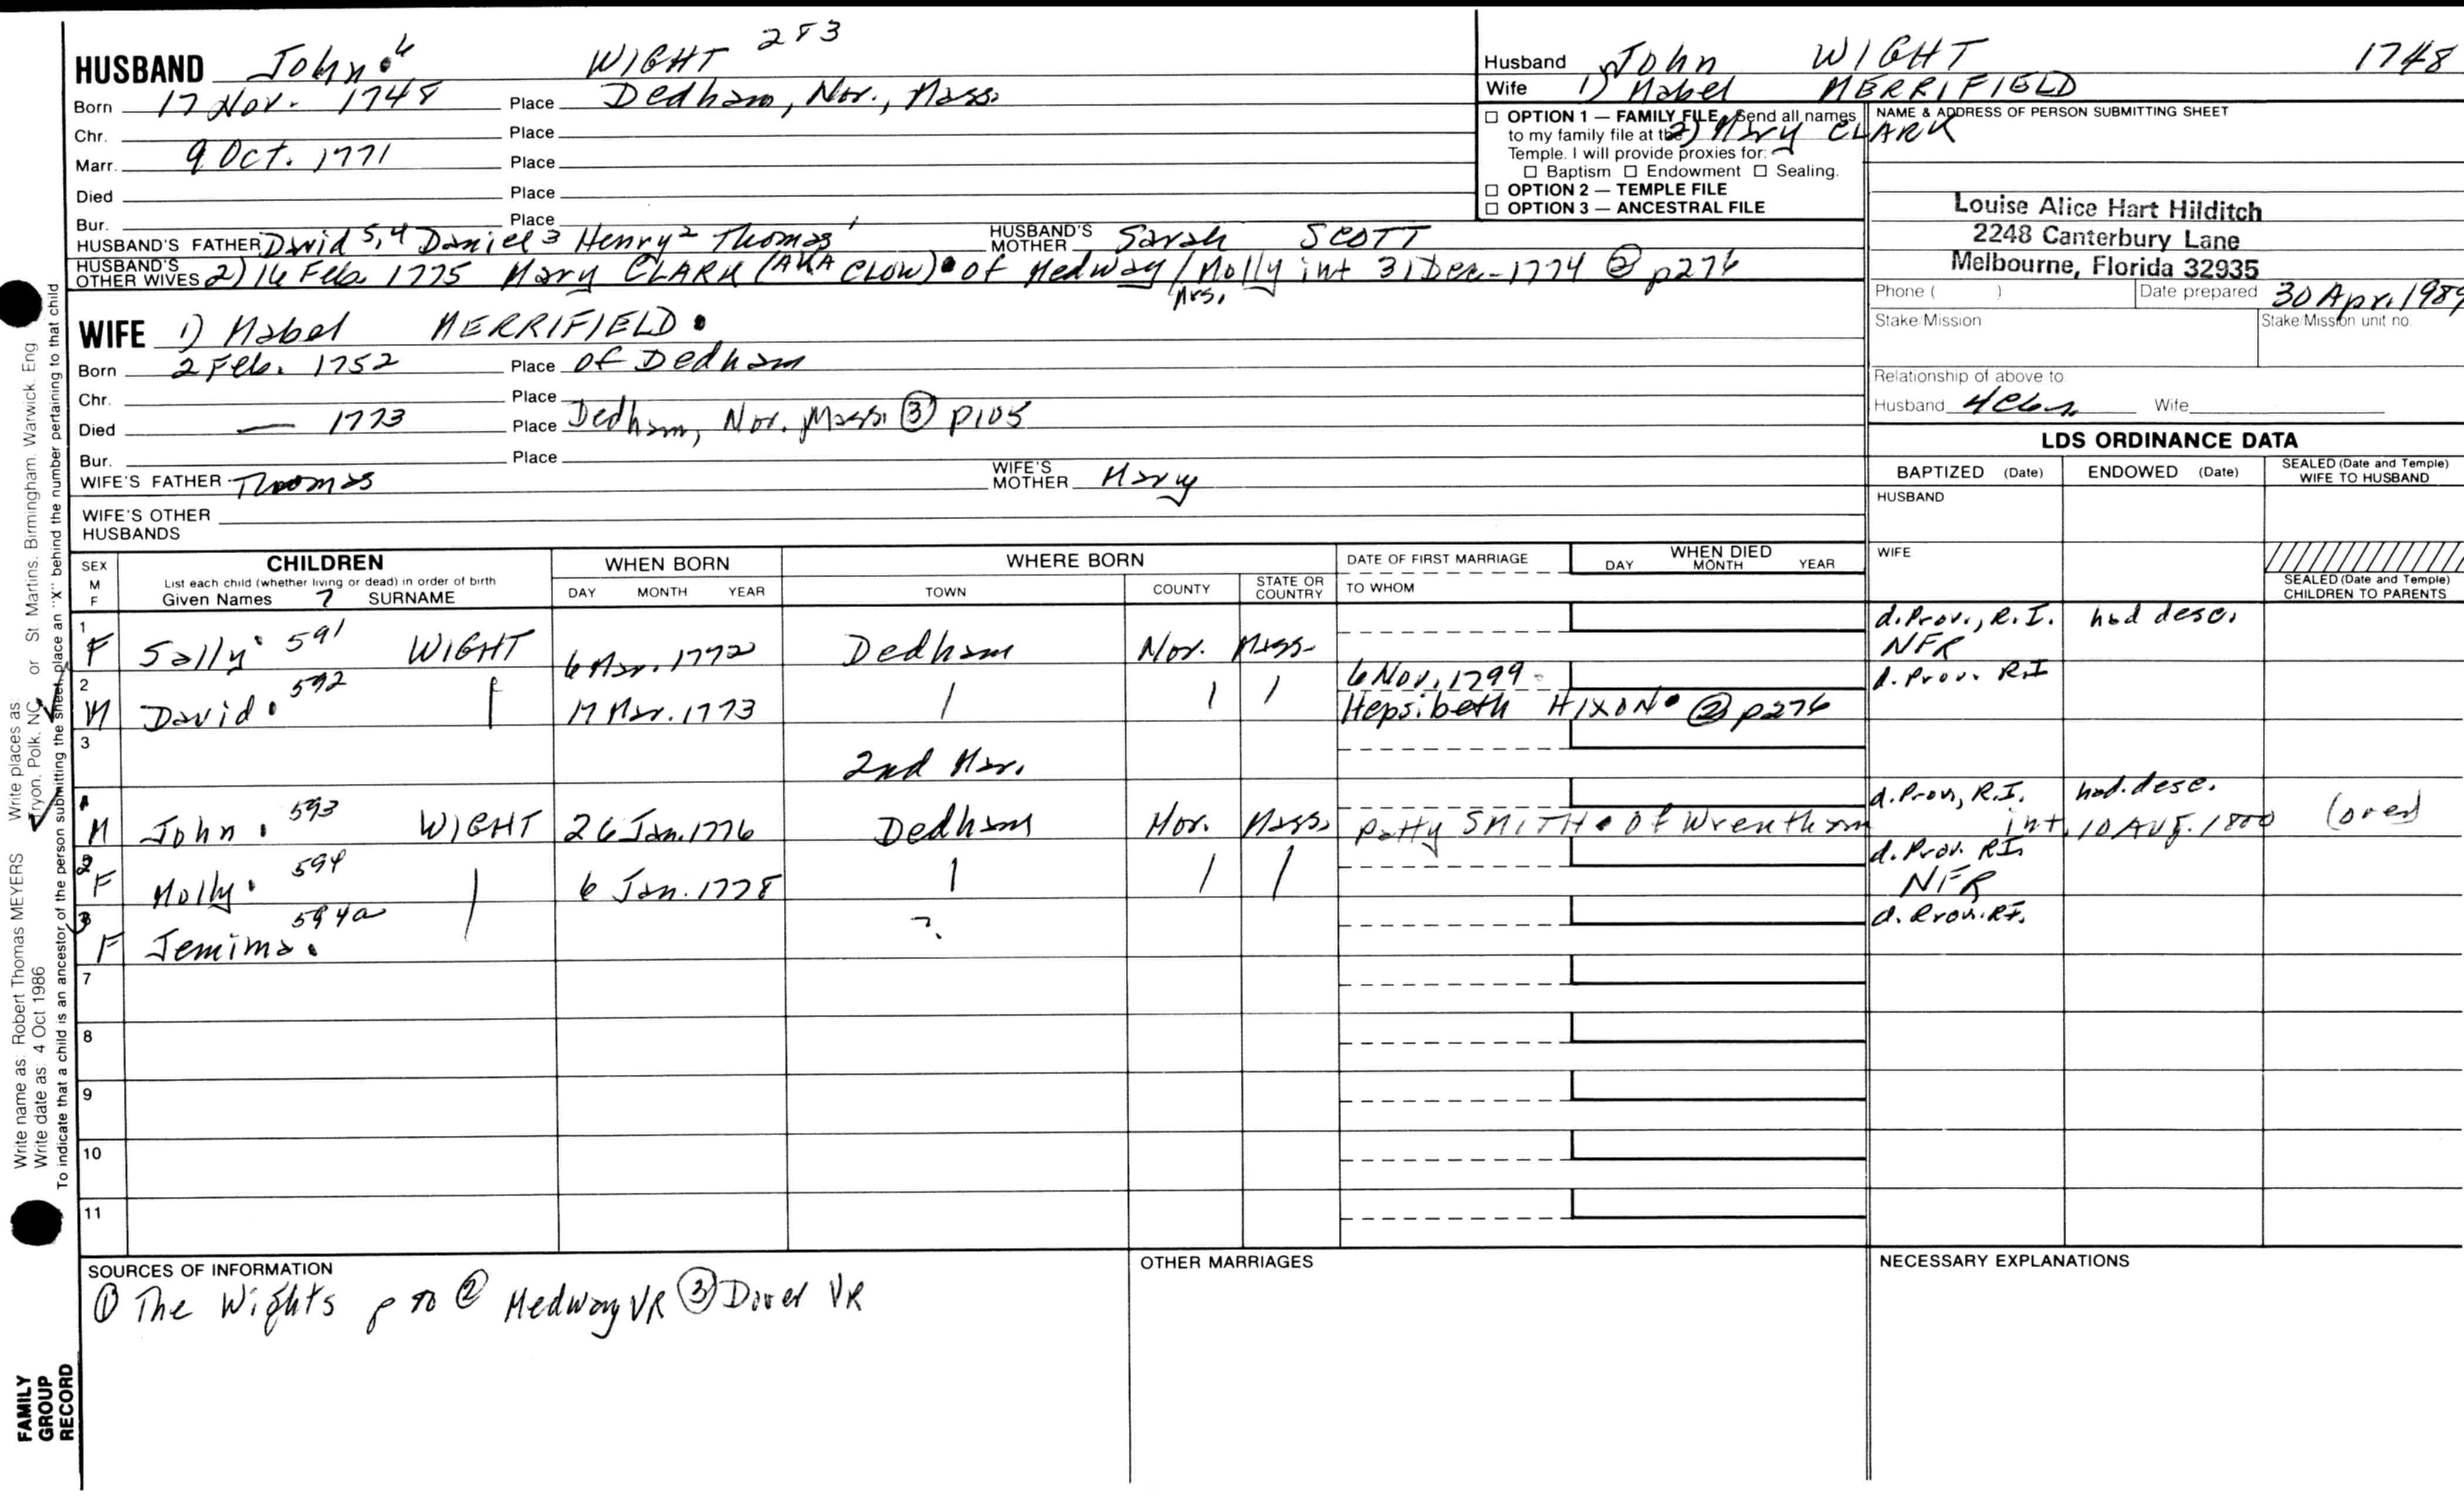 HUSBAND John.6 WIGHT 283
Born 17 Nov. 1748 Place Dedham, Nor., Mass.
Chr. Place
Marr. 9 Oct. 1771 Place
Died Place
Bur. Place
HUSBAND'S FATHER David 5,4 Daniel 3 Henry 2 Thomas 1 HUSBAND'S MOTHER Sarah SCOTT
HUSBAND'S OTHER WIVES 2) 16 Feb. 1775 Mary CLARK (AKA CLOW). of Medway / Molly int 31 Dec. 1774 ② p276
Mrs.
WIFE 1) Mabel MERRIFIELD.
Born 2 Feb. 1752 Place of Dedham
Chr. Place
Died — 1773 Place Dedham, Nor. Mass. ③ p105
Bur. Place
WIFE'S FATHER Thomas WIFE'S MOTHER Mary
WIFE'S OTHER HUSBANDS
Husband John WIGHT 1748
Wife 1) Mabel MERRIFIELD
2) Mary CLARK
☐ OPTION 1 — FAMILY FILE Send all names
to my family file at the
Temple. I will provide proxies for:
☐ Baptism ☐ Endowment ☐ Sealing.
☐ OPTION 2 — TEMPLE FILE
☐ OPTION 3 — ANCESTRAL FILE
NAME & ADDRESS OF PERSON SUBMITTING SHEET
Louise Alice Hart Hilditch
2248 Canterbury Lane
Melbourne, Florida 32935
Phone ( ) Date prepared 30 Apr. 1989
Stake/Mission Stake/Mission unit no.
Relationship of above to
Husband Wife
LDS ORDINANCE DATA
BAPTIZED (Date) ENDOWED (Date) SEALED (Date and Temple) WIFE TO HUSBAND
HUSBAND
WIFE
SEALED (Date and Temple) CHILDREN TO PARENTS
SEX M F CHILDREN WHEN BORN WHERE BORN DATE OF FIRST MARRIAGE WHEN DIED
List each child (whether living or dead) in order of birth
Given Names 7 SURNAME DAY MONTH YEAR TOWN COUNTY STATE OR COUNTRY TO WHOM DAY MONTH YEAR
1 F Sally. 591 WIGHT 6 Mar. 1772 Dedham Nor. Mass. d. Prov., R.I. had desc.
NFR
2 M David. 592 | 17 Mar. 1773 | | | 6 Nov. 1799 d. Prov. R.I
Hepsibeth HIXON. ② p276
3 2nd Mar.
1 M John. 593 WIGHT 26 Jan. 1776 Dedham Nor. Mass. Patty SMITH. of Wrentham d. Prov, R.I. had. desc.
int. 10 Aug. 1800 (over)
2 F Molly. 594 | 6 Jan. 1778 | | | d. Prov. RI.
NFR
3 F Jemima. 594a ? d. Prov. RI.
7
8
9
10
11
SOURCES OF INFORMATION
① The Wights p 70 ② Medway VR ③ Dover VR
OTHER MARRIAGES
NECESSARY EXPLANATIONS
Write name as: Robert Thomas MEYERS Write places as: Tryon, Polk, NC or St. Martins, Birmingham, Warwick, Eng
Write date as: 4 Oct 1986
To indicate that a child is an ancestor of the person submitting the sheet, place an "X" behind the number pertaining to that child
FAMILY
GROUP
RECORD